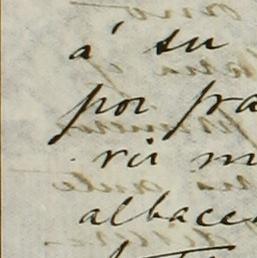 á su
por fra
rir m
albace